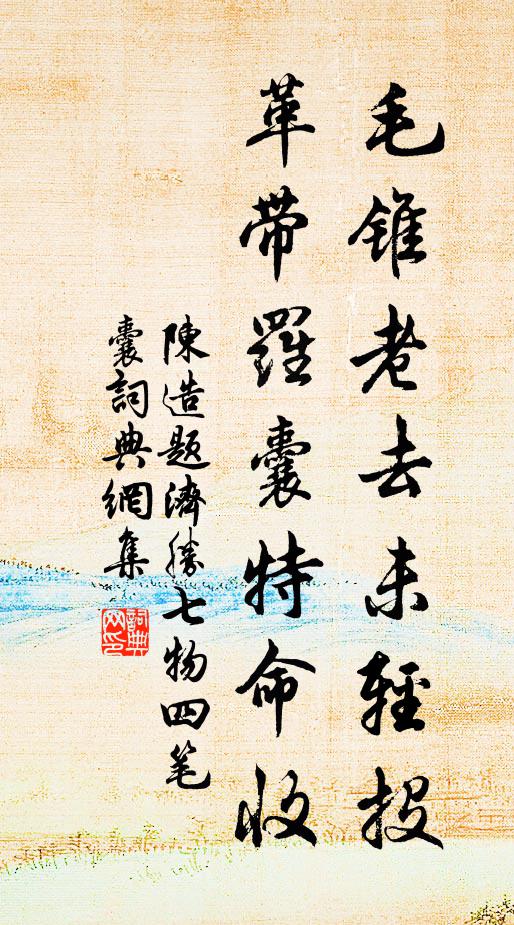 毛錐老去未輕投
革帶羅囊特命收
陳造題濟勝七物四笔
囊詞典網集
詞典网印